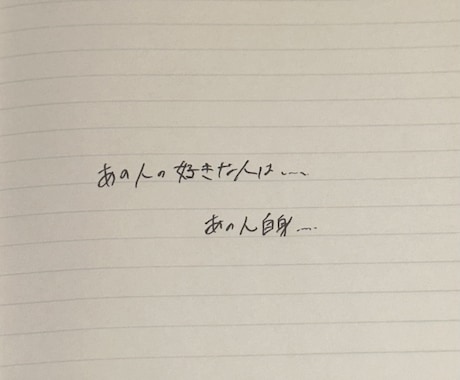 あの人の好きな人は....
あの人自身....